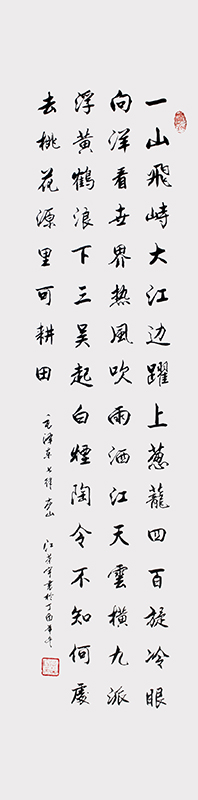 一山飛峙大江边躍上葱蘢四百旋冷眼
向洋看世界热風吹雨洒江天雲横九派
浮黄鶴浪下三吴起白煙陶令不知何處
去桃花源里可耕田
毛澤東七律庐山
書於丁酉年冬